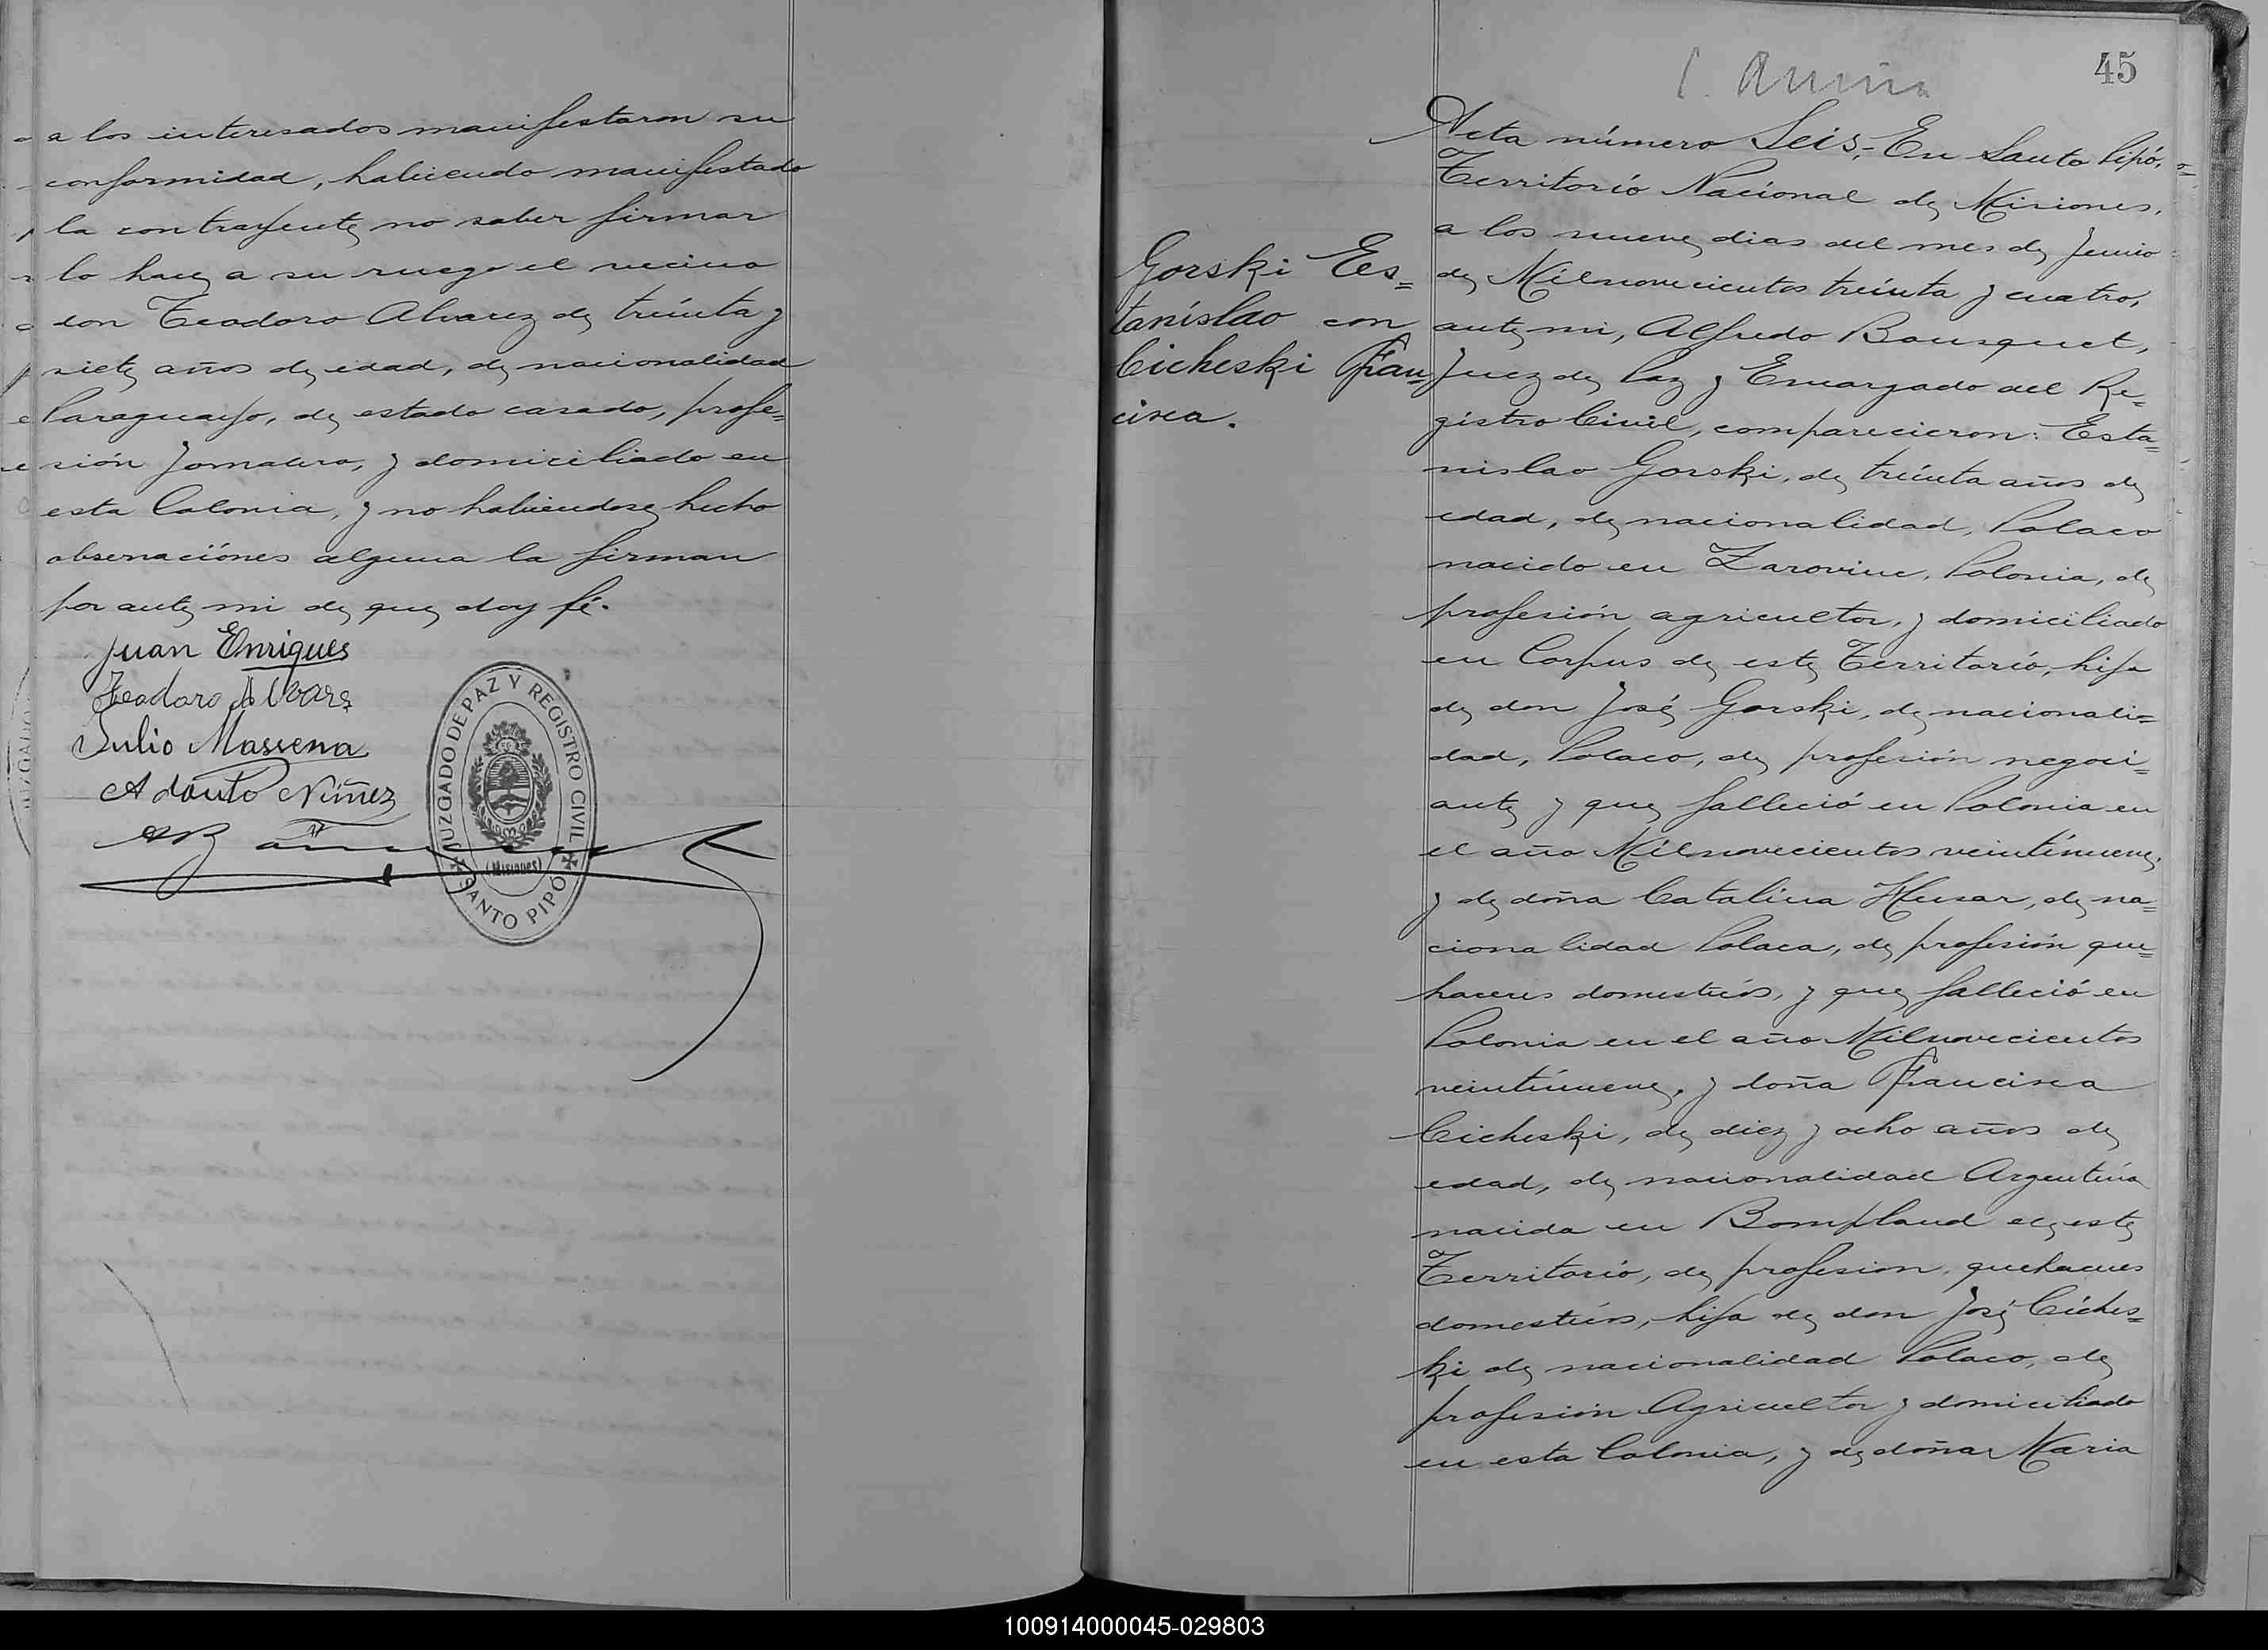 a los interesados manifestaron su
conformidad, habiendo manifestado
la contrayente no saber firmar
lo hace a su ruego el vecino
don Teodoro Alvarez de treinta y
siete años de edad, de nacionalidad
Paraguayo, de estado casado, profe=
sión Jornalero, y domiciliado en
esta Colonia, y no habiendose hecho
observaciónes alguna la firman
por ante mi de que doy fé.
Juan Enriques
Teodoro Alvarez
Julio Massena
Adanto Núñez
JUZGADO DE PAZ Y REGISTRO CIVIL
(Misiones)
SANTO PIPÓ
45
Acta número Seis,- En Santo Pipó,
Territorio Nacional de Misiones,
a los nueve dias del mes de Junio
de Milnovecientos treinta y cuatro,
ante mi, Alfredo Bousquet,
Juez de Paz y Encargado del Re=
gistro Civil, comparecieron: Esta=
nislao Gorski, de treinta años de
edad, de nacionalidad, Polaco
nacido en Polonia, de
profesión agricultor, y domiciliado
en Corpus de este Territorio, hijo
de don José Gorski, de nacionali=
dad, Polaco, de profesión negoci=
ante y que falleció en Polonia en
el año Milnovecientos veintinueve,
y de doña Catalina Husar, de na=
cionalidad Polaca, de profesión que=
haceres domesticos, y que falleció en
Polonia en el año Milnovecientos
veintinueve, y doña Francisca
Cicheski, de diez y ocho años de
edad, de nacionalidad Argentina
nacida en Bompland de este
Territorio, de profesion, quehaceres
domesticos, hija de don José Ciches=
ki de nacionalidad Polaco, de
profesión Agricultor y domiciliado
en esta Colonia, y de doña Maria
Gorski Es=
tanislao con
Cicheski Fran=
cisca.
100914000045-029803